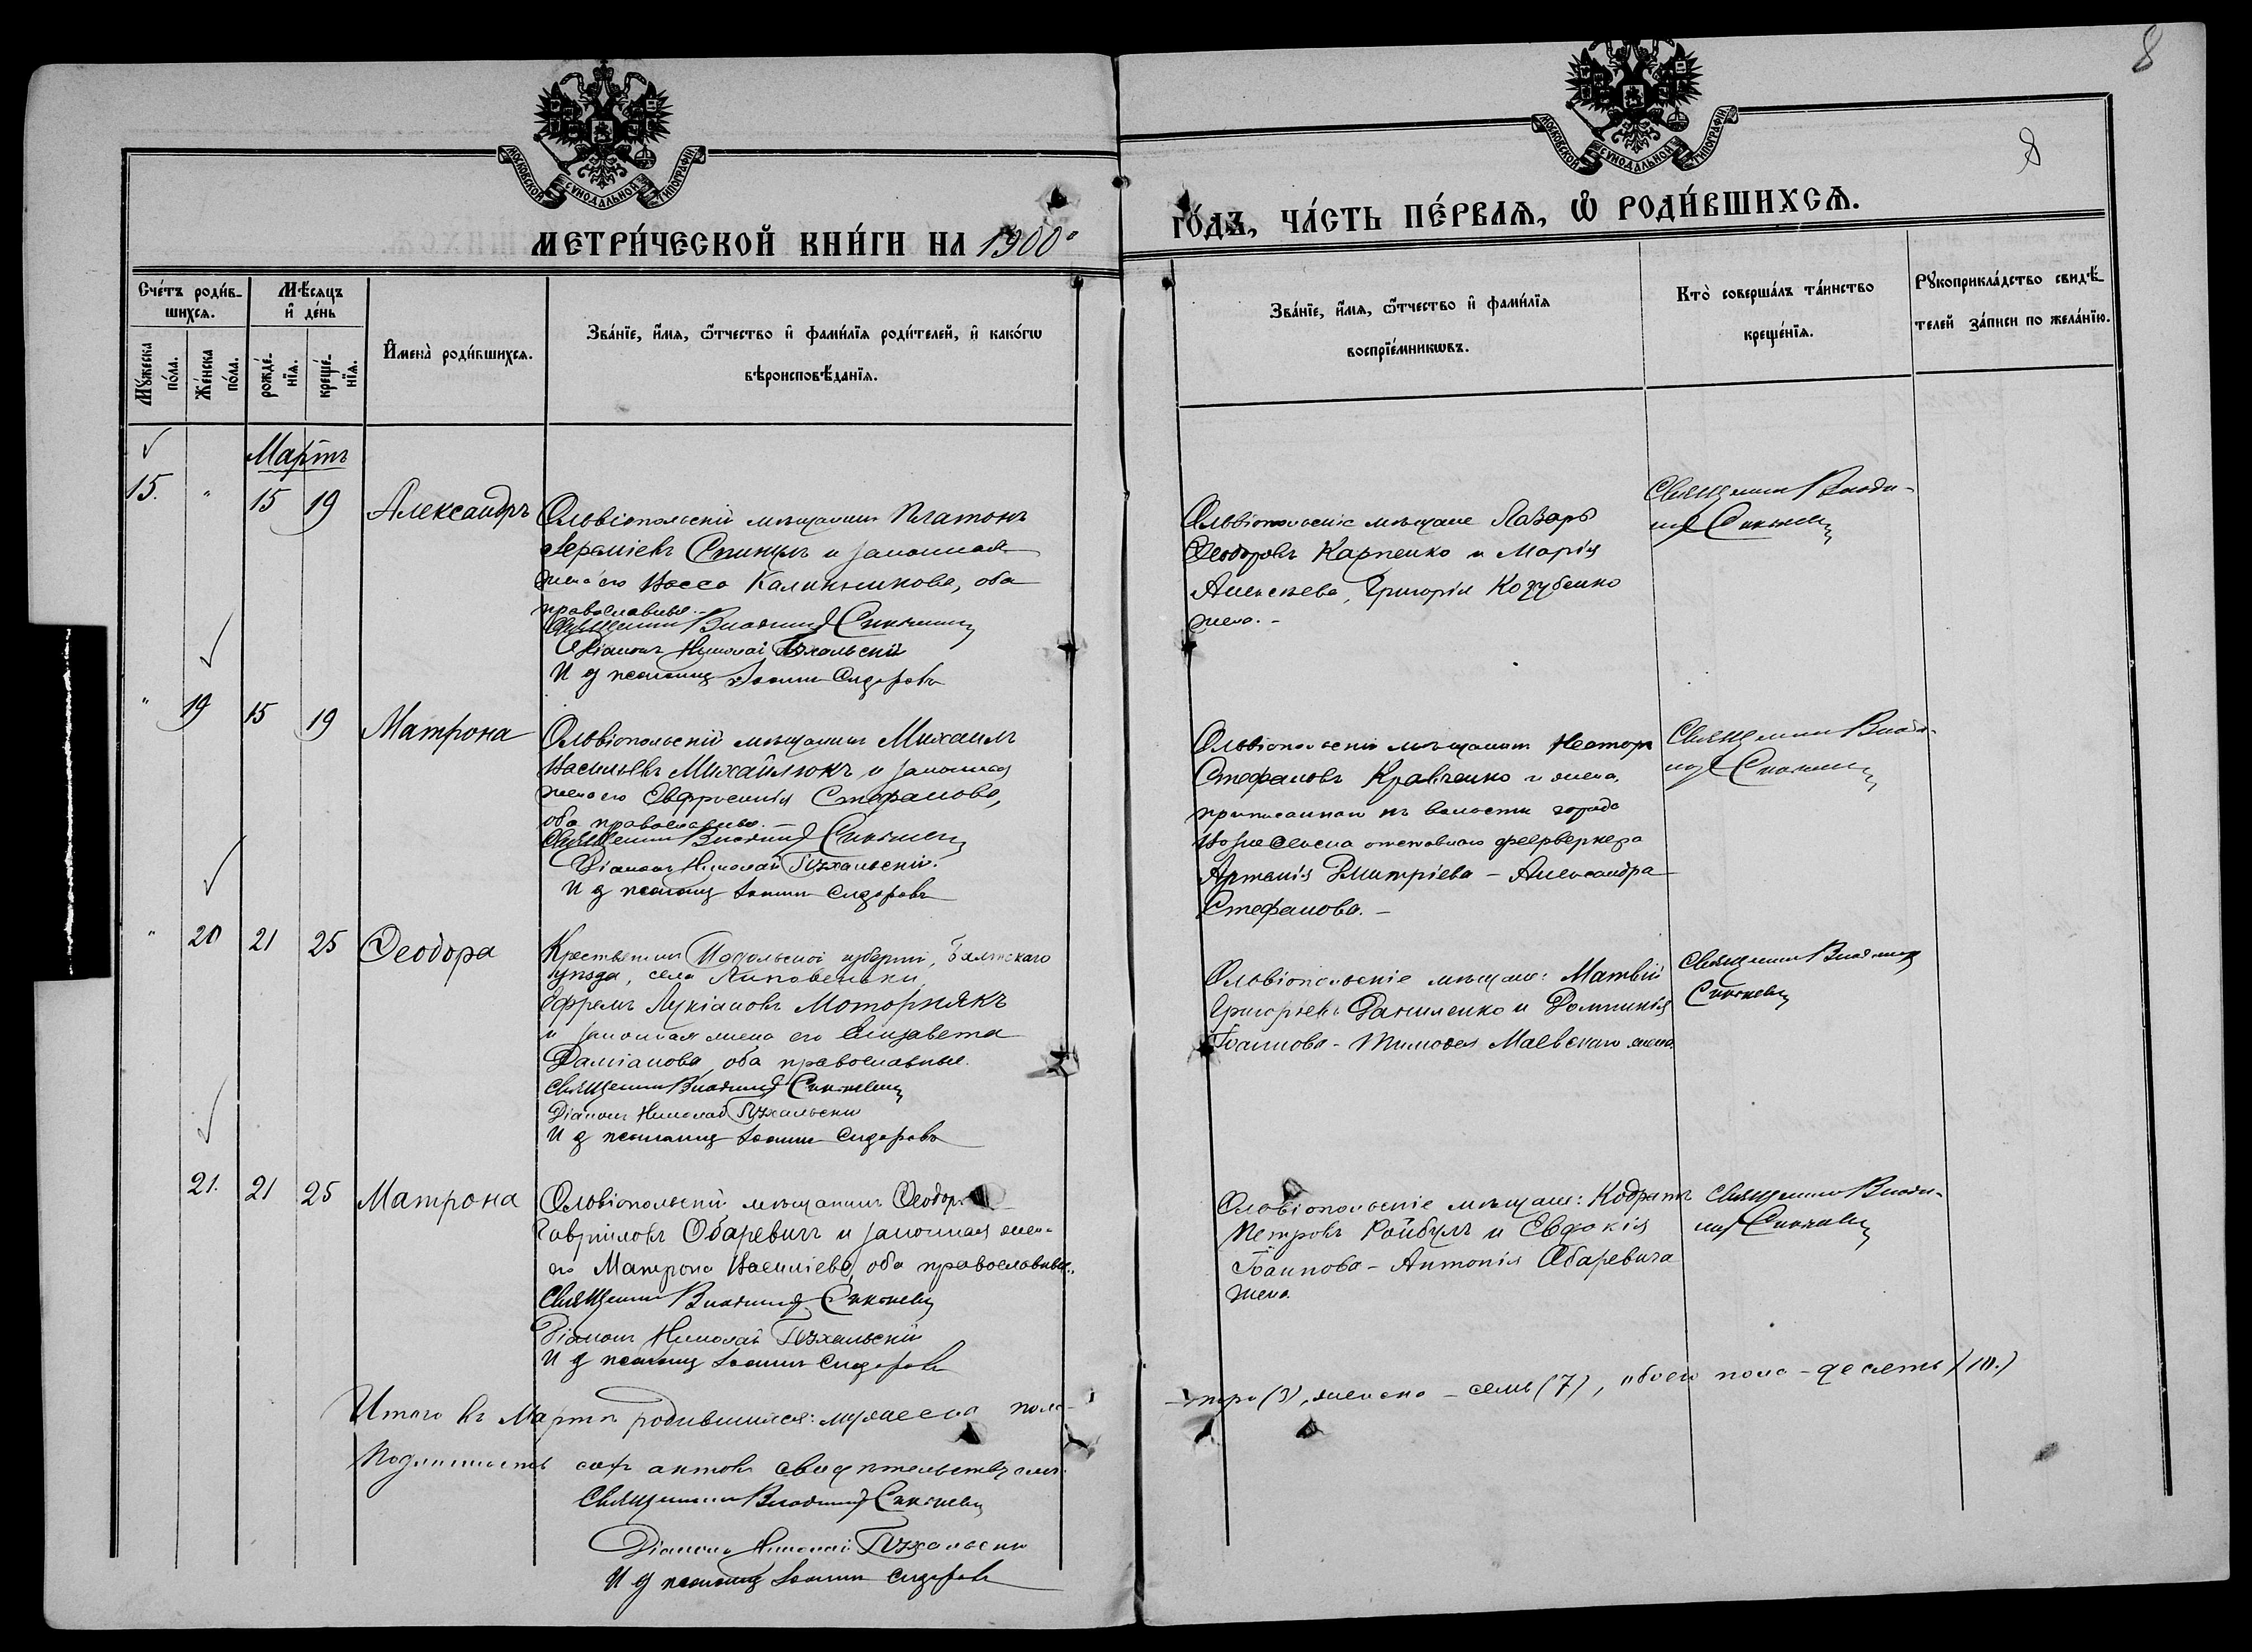 8
8
МОСКОВСКОЙ СѴНОДАЛЬНОЙ ТИПОГРАФІИ
МОСКОВСКОЙ СѴНОДАЛЬНОЙ ТИПОГРАФІИ
МЕТРИ́ЧЕСКОЙ КНИ́ГИ НА 1900º
ГО́ДЪ, ЧА́СТЬ ПЕ́РВАЯ, Ѡ҆ РОДИ́ВШИХСЯ.
Сче́тъ роди́в-
шихся.
Мѣ́сяцъ
и҆ де́нь
Мꙋ́жеска
по́ла.
Же́нска
по́ла.
рожде́-
нїя.
креще́-
нїя.
И҆мена̀ роди́вшихся.
Зва́нїе, и҆́мя, ѻ҆́тчество и҆ фами́лїя роди́телей, и҆ како́гѡ
вѣроисповѣ́данїя.
Зва́нїе, и҆́мя, ѻ҆́тчество и҆ фами́лїя
воспрїе́мникѡвъ.
Кто̀ соверша́лъ та́инство
креще́нїя.
Рꙋкоприкла́дство свидѣ́-
телей за́писи по жела́нїю.
Мартъ
15. " 15 19 Александръ
Ольвіопольскій мѣщанинъ Платонъ
Спинулъ и законная
жена его Васса Калинникова, оба
православные.
Священникъ Владимір
Діаконъ Николай Пухальскій
И д псаломщ Іоаннъ Сидоровъ
Ольвіопольскіе мѣщане Лазарь
Ѳеодоровъ Карпенко и Марія
Алексѣева, Григорія Козубенко
жена. -
Священникъ Влади-
мір
" 19 15 19 Матрона
Ольвіопольскій мѣщанинъ Михаилъ
Васильевъ Михайлюкъ и законная
жена его Евфросинія Стефанова,
оба православные. -
Священникъ Владимір
Діаконъ Николай Пухальскій.
И д псаломщ Іоаннъ Сидоровъ
Ольвіопольскій мѣщанинъ Несторъ
Стефановъ Кравченко и жена,
приписаннаго къ волости города
Вознесенска отставного фейерверкера
Артемія Дмитріева - Александра
Стефанова. -
Священникъ Влади-
мір
" 20 21 25 Ѳеодора
Крестьянинъ Подольской губерніи, Балтскаго
уѣзда, села Липовеньки,
Ефремъ Лукіановъ Моторнякъ
и законная жена его Елизавета
Даміанова, оба православные.
Священникъ Владимір
Діаконъ Николай Пухальскій
И д псаломщ Іоаннъ Сидоровъ
Ольвіопольскіе мѣщане: Матвій
Григорьевъ Даниленко и Домникія
Іоаннова - Тимоѳея Маевскаго жена.
Священникъ Владимір
21. 21 25 Матрона
Ольвіопольскій мѣщанинъ Ѳеодоръ
Гавріиловъ Обаревичъ и законная жена
его Матрона Василіева, оба православные.
Священникъ Владимір
Діаконъ Николай Пухальскій
И д псаломщ Іоаннъ Сидоровъ
Ольвіопольскіе мѣщане: Кодратъ
Петровъ Ройбулъ и Евдокія
Іоаннова - Антонія Обаревича
жена
Священникъ Влади-
мір
Итого въ Мартѣ родившихся: мужеска пола -
- три (3), женска - семь (7), обоего пола - десять (10.)
Подлинность сихъ актовъ свидѣтельствуемъ:
Священникъ Владимір
Діаконъ Николай Пухальскій
И д псаломщ Іоаннъ Сидоровъ